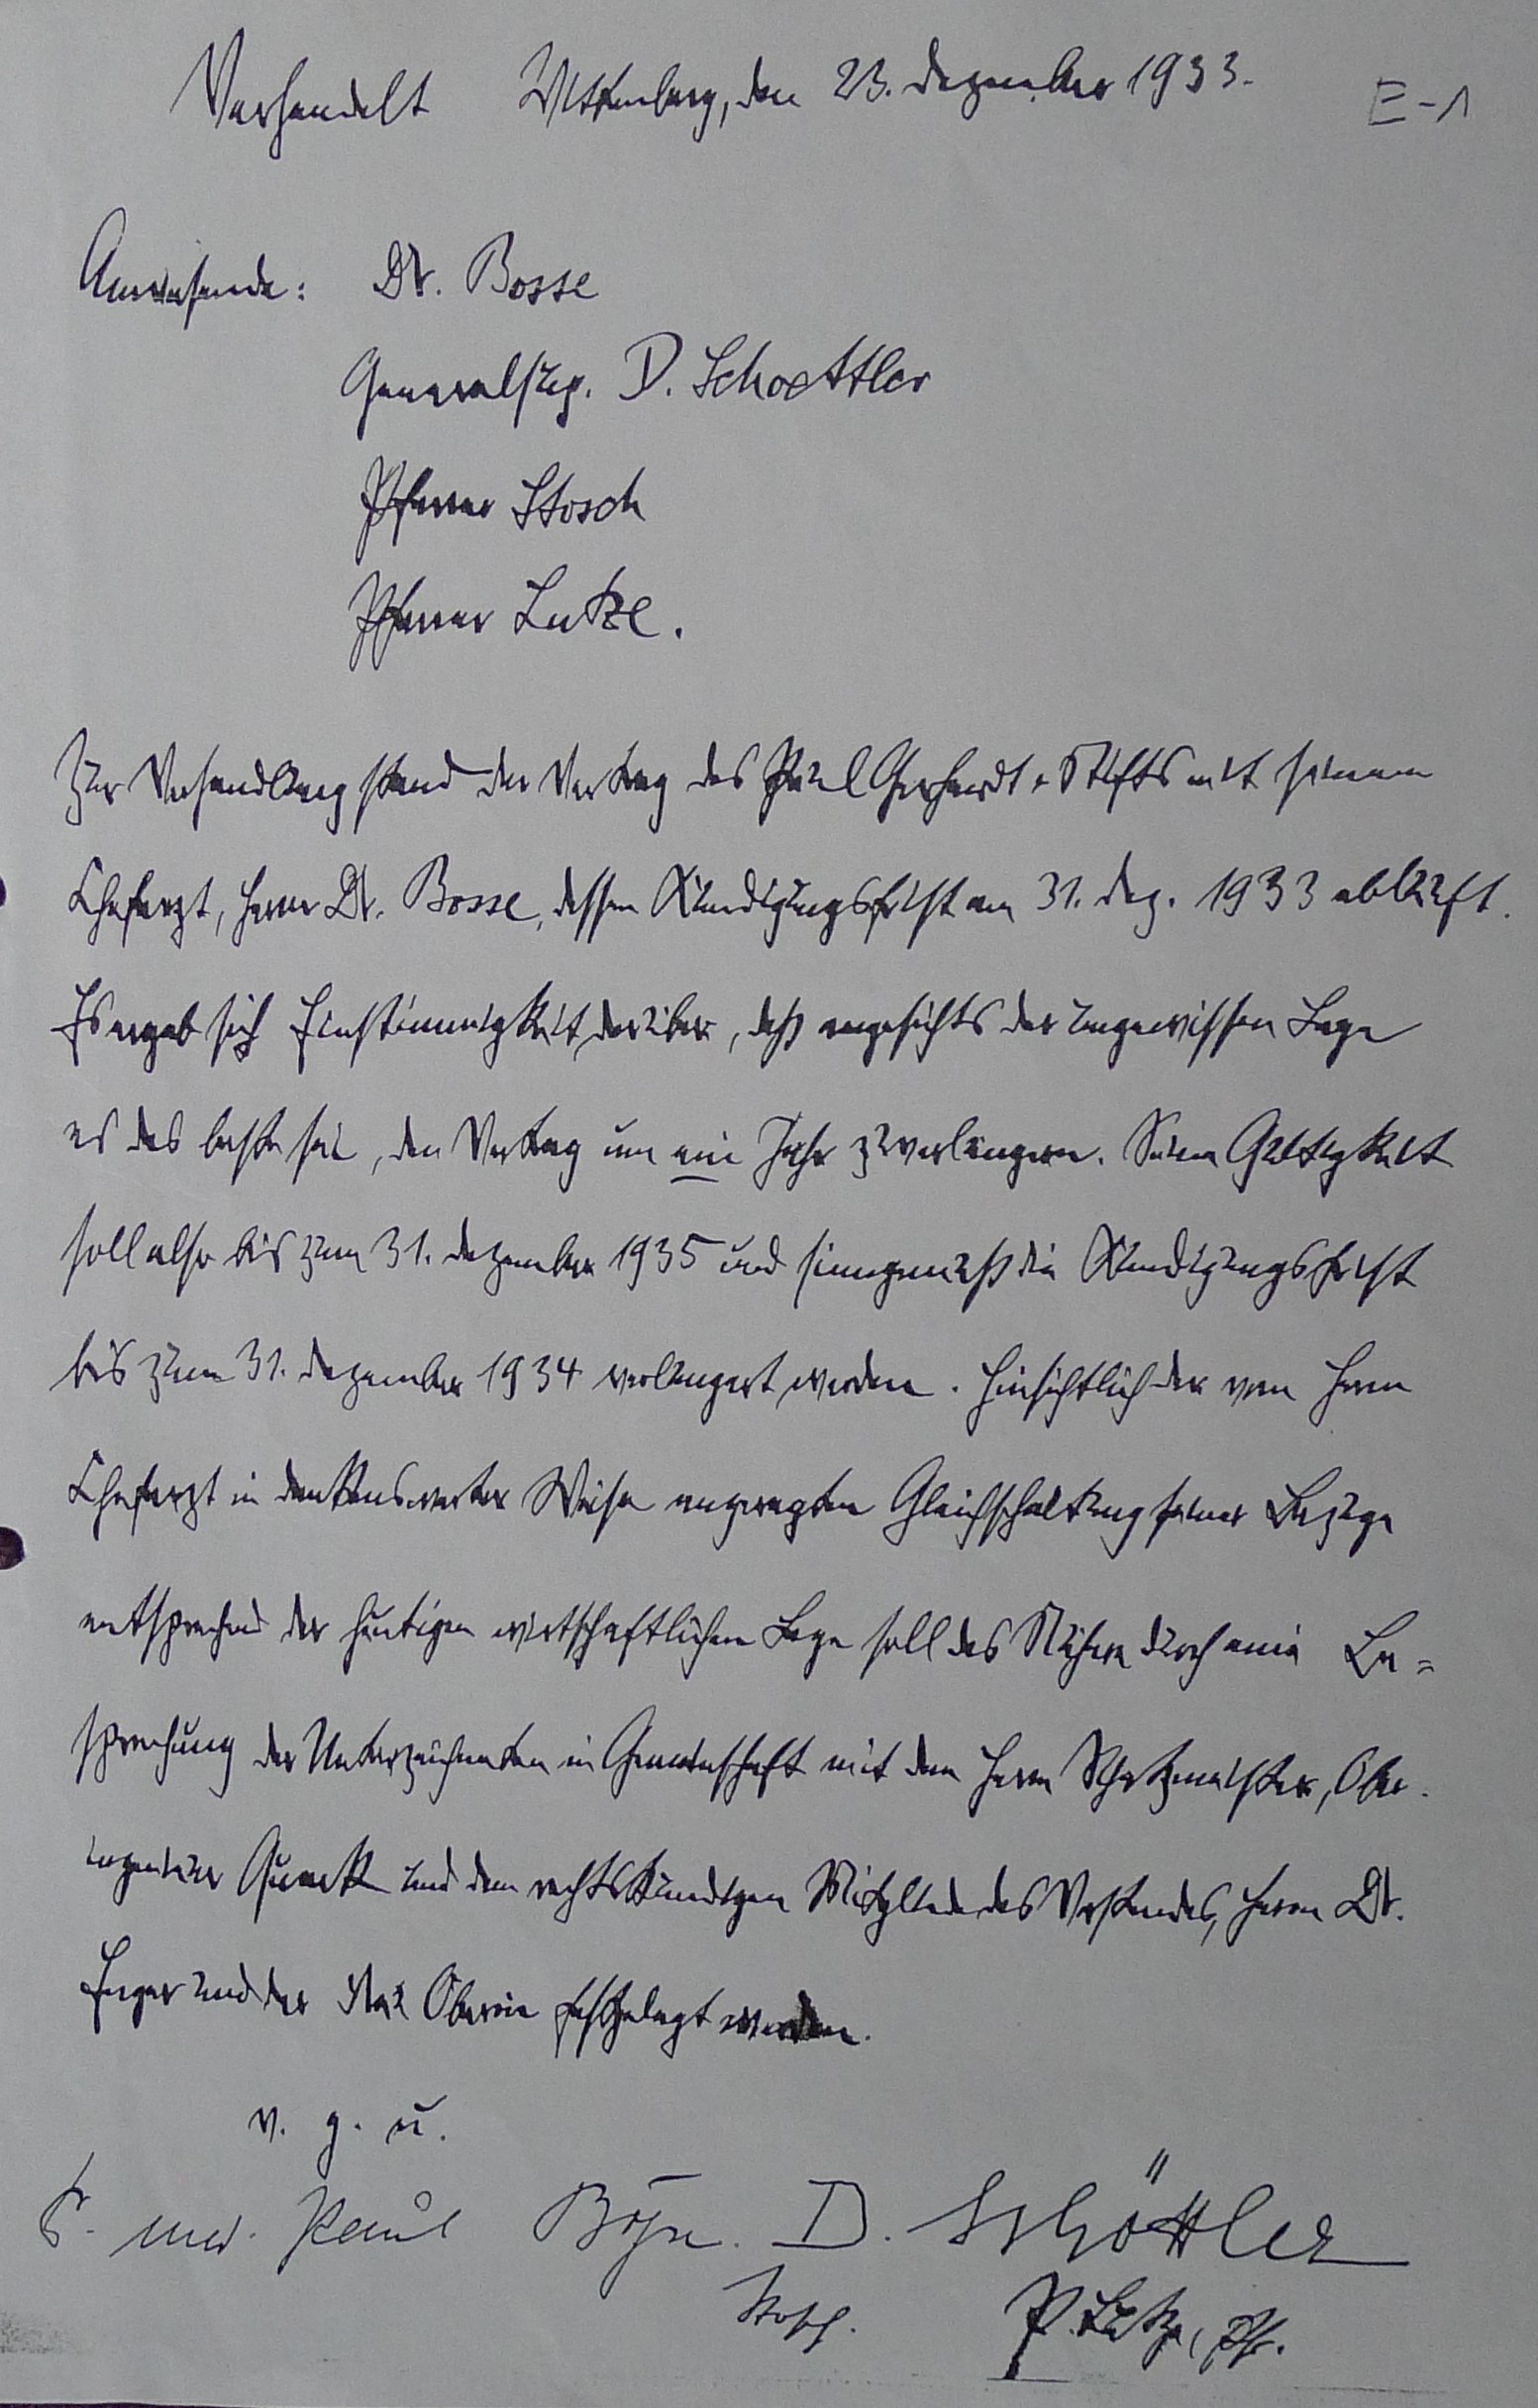 Verhandelt Wittenberg, den 23. Dezember 1933.
E-1
Anwesende: Dr. Bosse
Generalsup. D. Schoettler
Pfarrer Stosch
Pfarrer Lutze.
Zur Verhandlung stand der Vertrag des Paul Gerhardt-Stifts mit seinem
Chefarzt, Herrn Dr. Bosse, dessen Kündigungsfrist am 31. Dez. 1933 abläuft.
Es ergab sich Einstimmigkeit darüber, daß angesichts der ungewissen Lage
es das beste sei, den Vertrag um ein Jahr zu verlängern. Seine Gültigkeit
soll also bis zum 31. Dezember 1935 und sinngemäß die Kündigungsfrist
bis zum 31. Dezember 1934 verlängert werden. Hinsichtlich der vom Herrn
Chefarzt in dankenswerter Weise angeregten Gleichschaltung seiner Bezüge
entsprechend der heutigen wirtschaftlichen Lage soll das Nähere durch eine Be=
sprechung der Unterzeichneten in Gemeinschaft mit dem Herrn Schatzmeister, Ober-
ingenieur Quack und dem rechtskundigen Mitgliede des Vorstandes, Herrn Dr.
und der Frau Oberin festgelegt werden.
v. g. u.
med. Paul Bosse. D. Schöttler
Stosch. P. Lutze, Pfr.